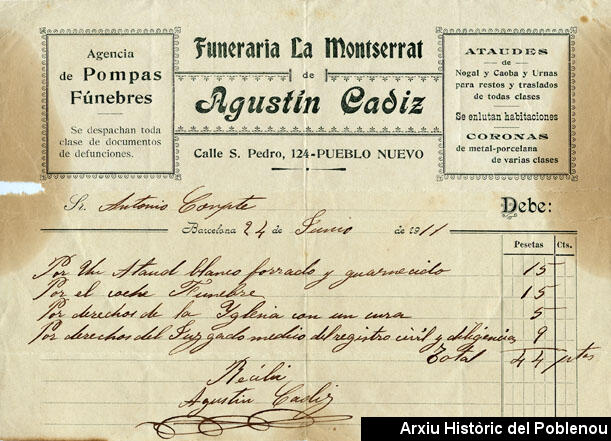 Agencia
de Pompas
Fúnebres
Se despachan toda
clase de documentos
de defunciones.
Funeraria La Montserrat
de
Agustín Cadiz
Calle S. Pedro, 124-PUEBLO NUEVO
ATAUDES
DE
Nogal y Caoba y Urnas
para restos y traslados
de todas clases
Se enlutan habitaciones
CORONAS
de metal-porcelana
de varias clases
Sr. Antonio Compte
Debe:
Barcelona 24 de Junio de 1911
Pesetas Cts.
Por Un Ataud blanco forrado y guarnecido 15
Por el coche Fúnebre 15
Por derechos de la Iglesia con un cura 5
Por derechos del Juzgado medico del registro civil y diligencias 9
Total 44 ptas
Recibi
Agustin Cadiz
Arxiu Històric del Poblenou